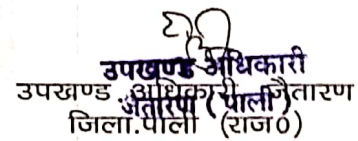 उपखण्ड अधिकारी
जैतारण (पाली)
उपखण्ड अधिकारी, जैतारण
जिला.पाली (राज०)